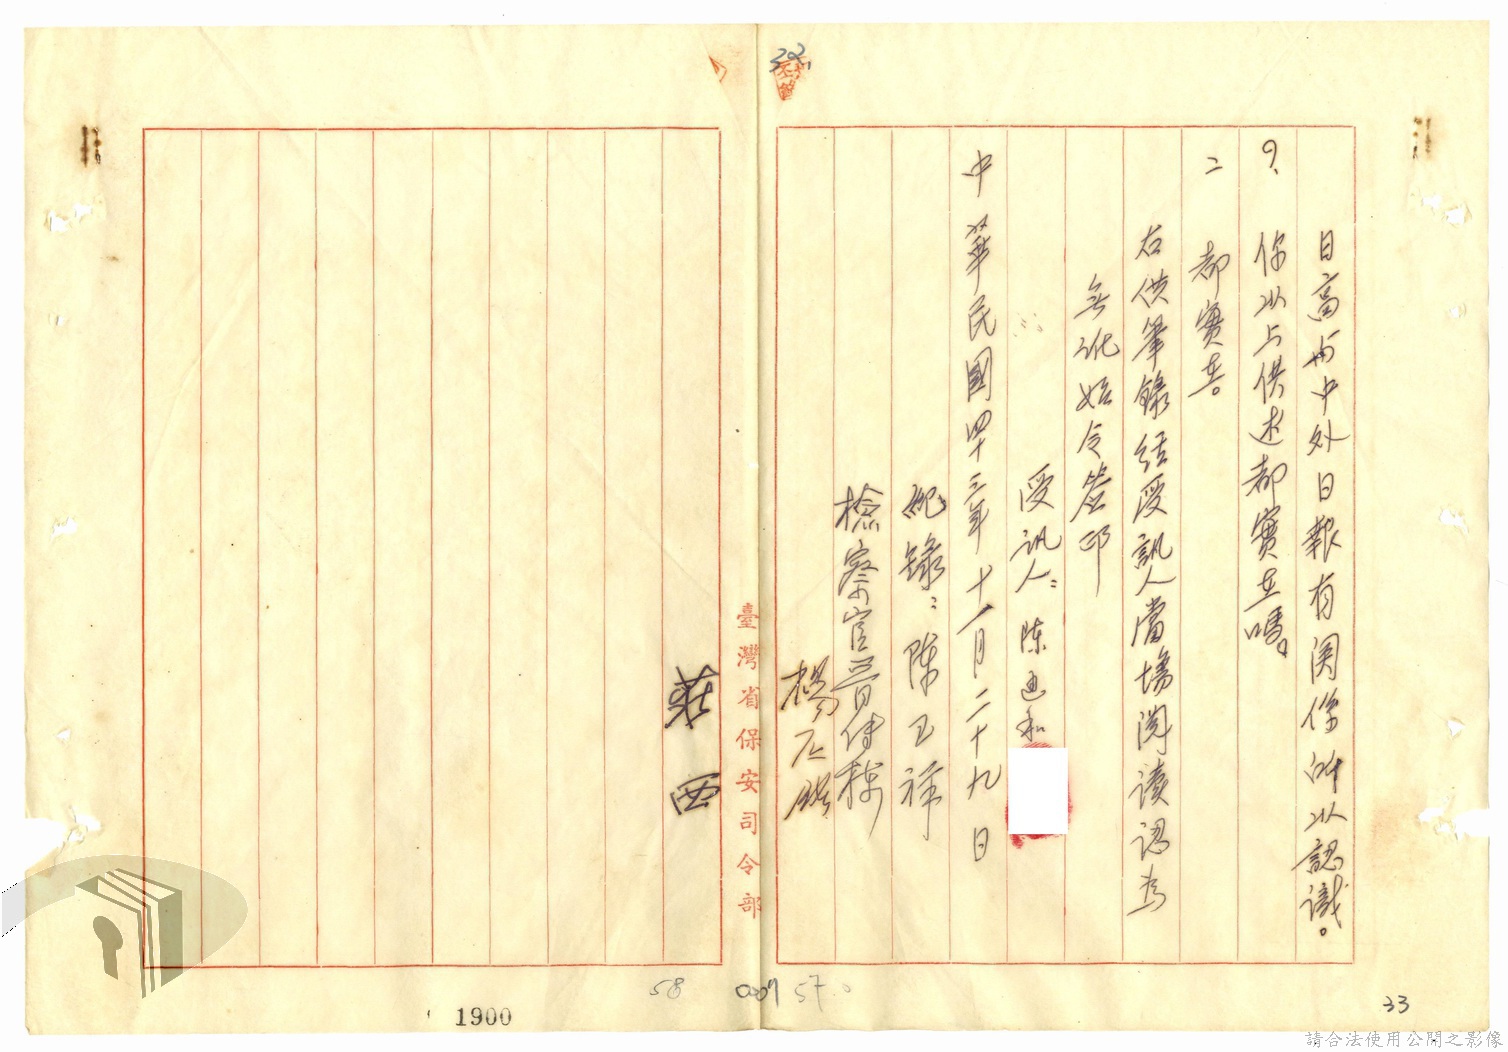 日高与中外日報有関係所以認識。
?、你以上供述都實在嗎。
二 都實在。
右供筆錄經受訊人當場閱讀認為
無訛始令簽印
受訊人：陳迺和
中華民國四十三年十一月二十九日
紀錄：陳玉祥
檢察官
楊
莊西
臺灣省保安司令部
32
58
57
1900
33
請合法使用公開之影像